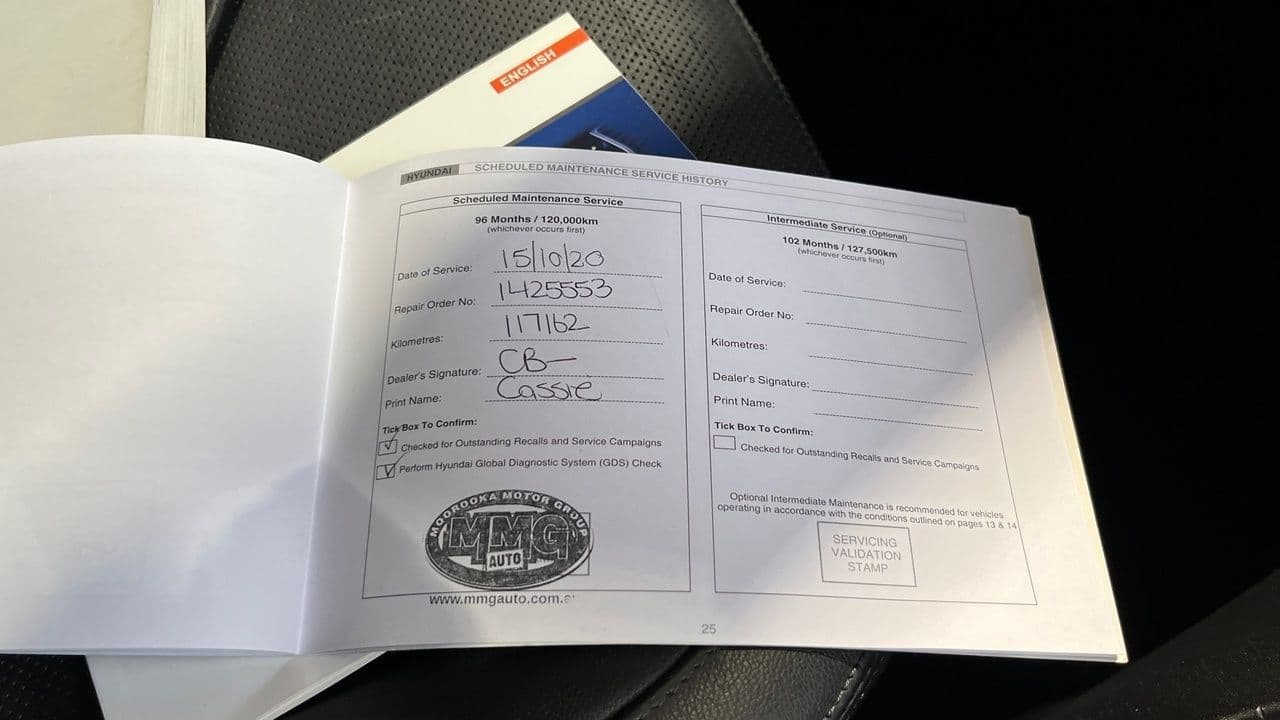 ENGLISH
HYUNDAI SCHEDULED MAINTENANCE SERVICE HISTORY
Scheduled Maintenance Service
96 Months / 120,000km
(whichever occurs first)
Date of Service: 15/10/20
Repair Order No: 1425553
Kilometres: 117162
Dealer's Signature: CB
Print Name: Cassie
Tick Box To Confirm:
Checked for Outstanding Recalls and Service Campaigns
Perform Hyundai Global Diagnostic System (GDS) Check
MOOROOKA MOTOR GROUP
MMG
AUTO
www.mmgauto.com.a
Intermediate Service (Optional)
102 Months / 127,500km
(whichever occurs first)
Date of Service:
Repair Order No:
Kilometres:
Dealer's Signature:
Print Name:
Tick Box To Confirm:
Checked for Outstanding Recalls and Service Campaigns
Optional Intermediate Maintenance is recommended for vehicles
operating in accordance with the conditions outlined on pages 13 & 14
SERVICING
VALIDATION
STAMP
25